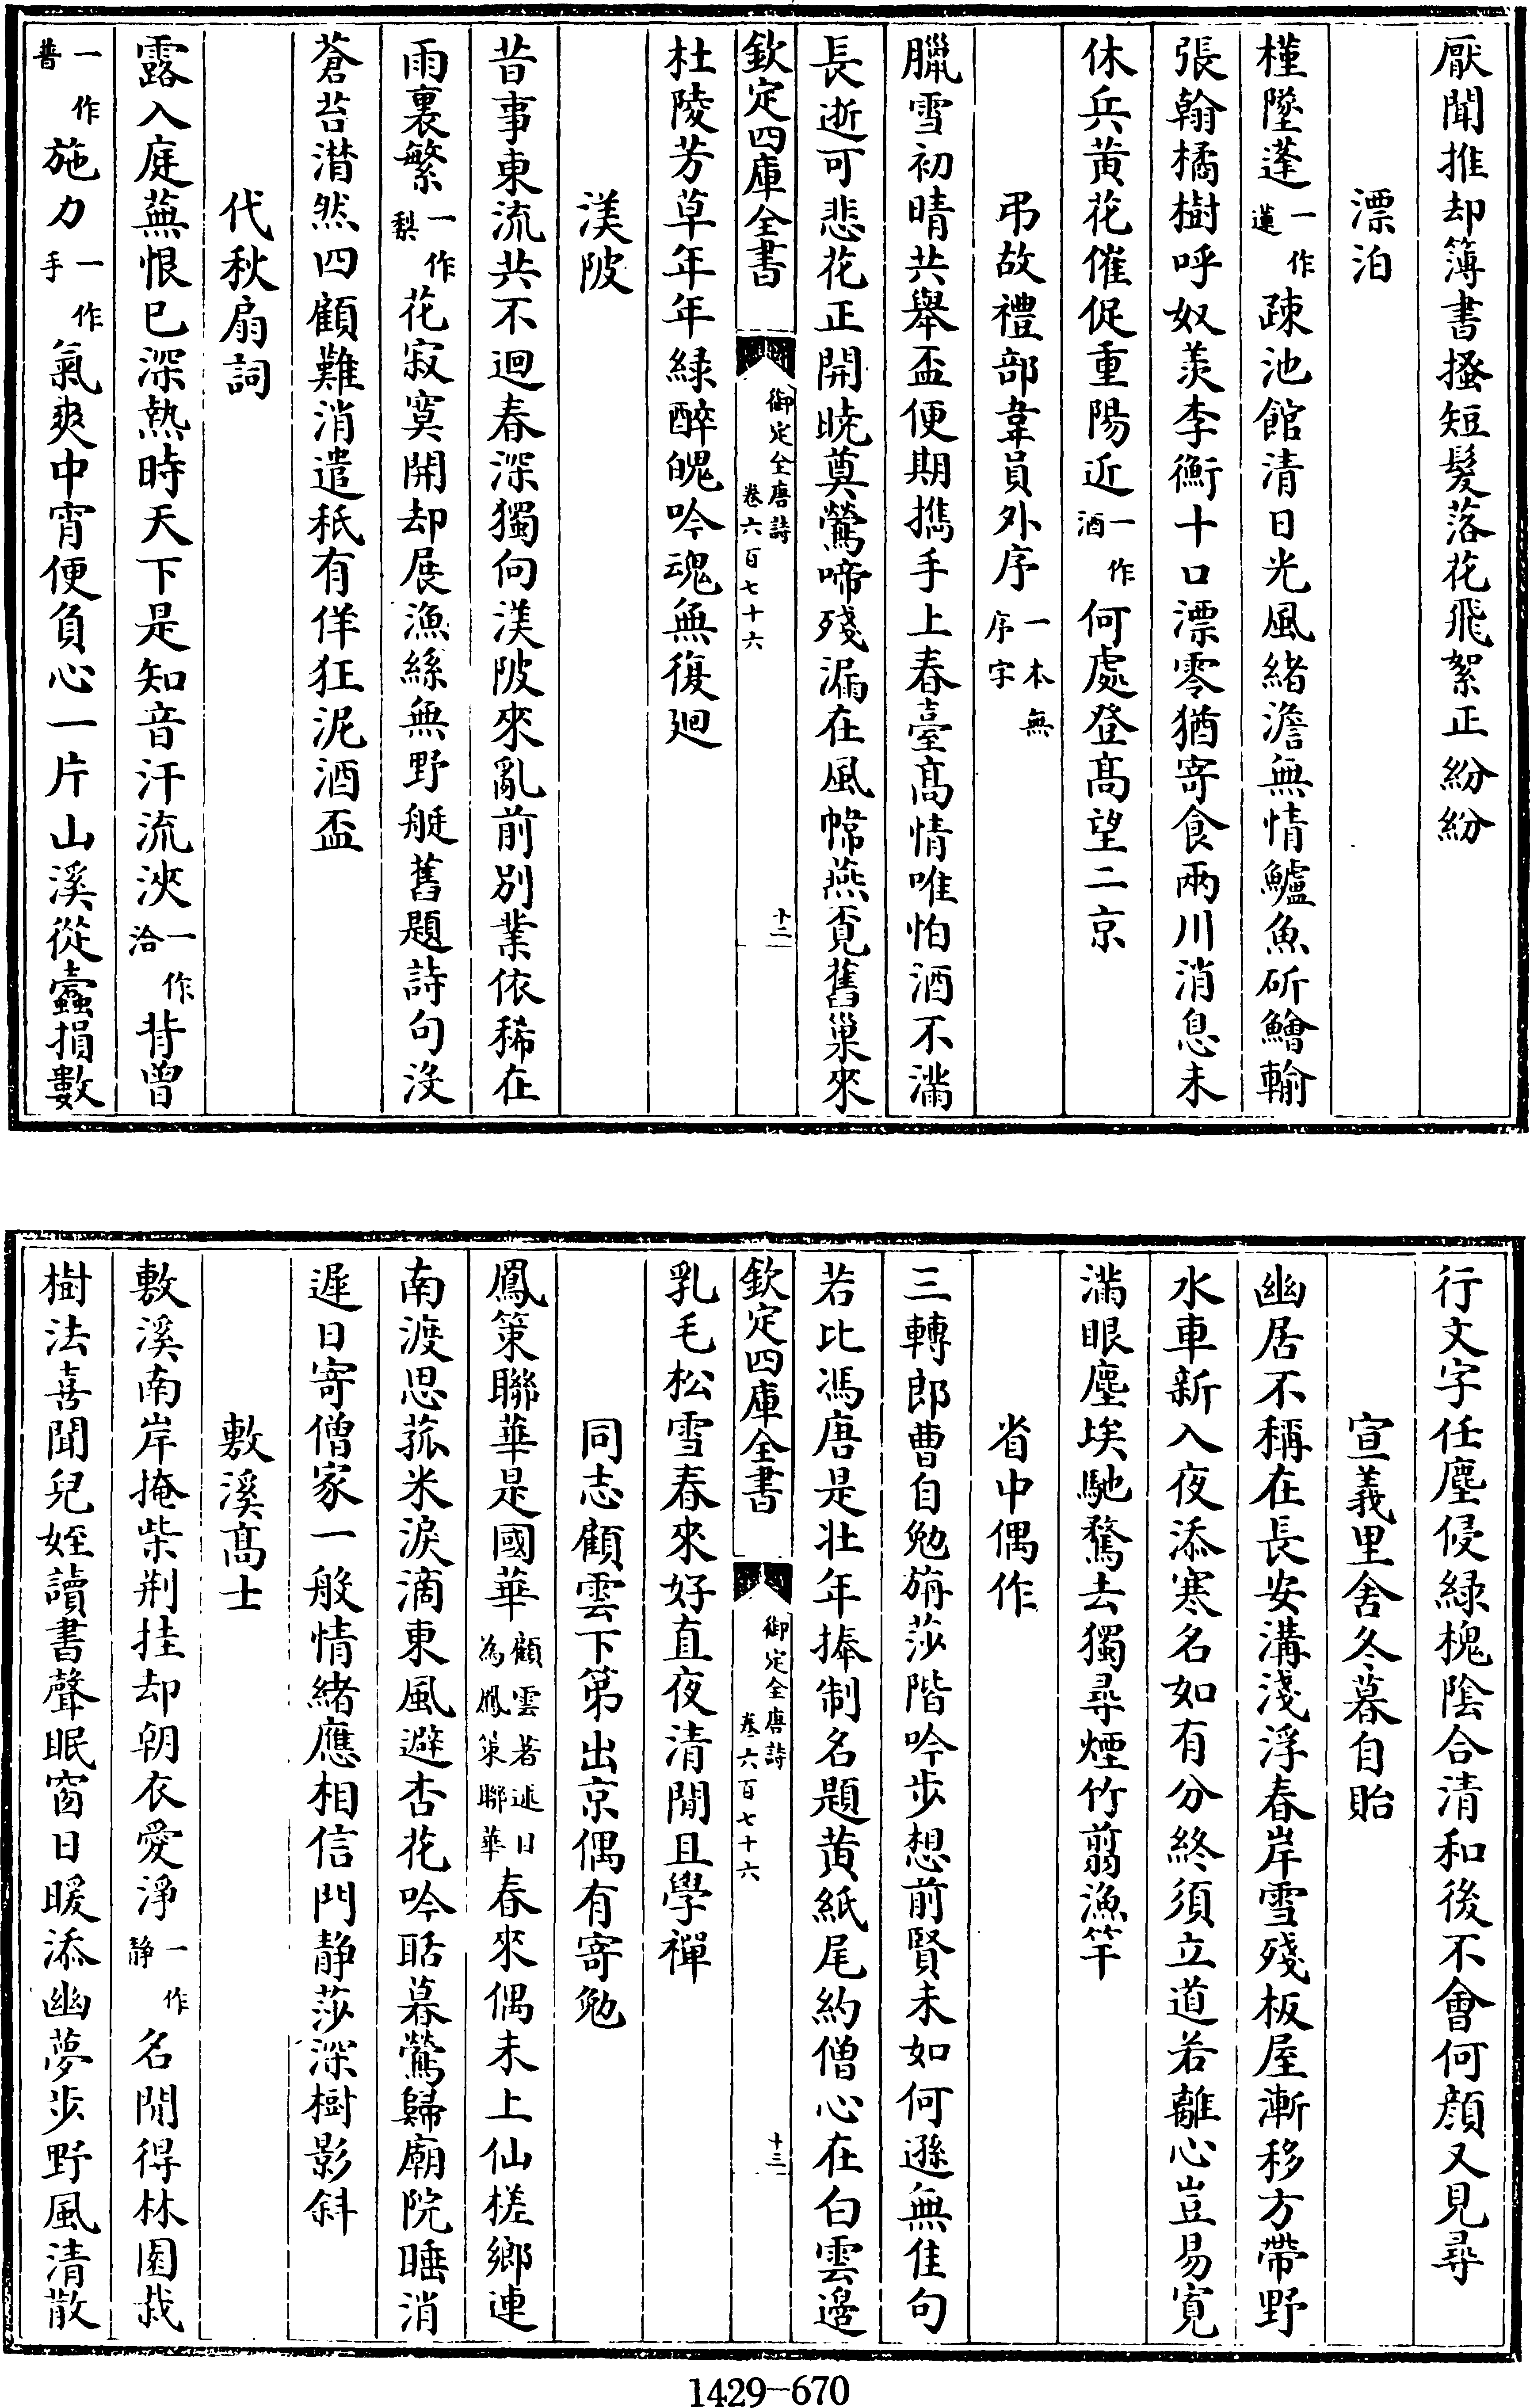 厭聞推却簿書搔短髮落花飛絮正紛紛
漂泊
槿墜蓬一作蓮疎池館清日光風緒澹無情鱸魚斫鱠輸
張翰橘樹呼奴羨李衡十口漂零猶寄食兩川消息未
休兵黄花催促重陽近一作酒何處登髙望二京
弔故禮部韋員外序一本無序字
臘雪初晴共舉盃便期攜手上春臺髙情唯怕酒不滿
長逝可悲花正開曉奠鶯啼殘漏在風幃燕覓舊巢來
欽定四庫全書
御定全唐詩
卷六百七十六
十二
杜陵芳草年年緑醉魄吟魂無復廻
渼陂
昔事東流共不迴春深獨向渼陂來亂前別業依稀在
雨裏繁一作梨花寂寞開却展漁絲無野艇舊題詩句没
蒼苔潸然四顧難消遣秖有佯狂泥酒盃
代秋扇詞
露入庭蕪恨已深熱時天下是知音汗流浹一作洽背曾
一作普施力一作手氣爽中宵便負心一片山溪從蠧損數
行文字任塵侵緑槐隂合清和後不會何顔又見尋
宣義里舍冬暮自貽
幽居不稱在長安溝淺浮春岸雪殘板屋漸移方帶野
水車新入夜添寒名如有分終須立道若離心豈易寛
滿眼塵埃馳騖去獨尋煙竹翦漁竿
省中偶作
三轉郎曹自勉旃莎階吟步想前賢未如何遜無佳句
若比馮唐是壯年捧制名題黄紙尾約僧心在白雲邊
欽定四庫全書
御定全唐詩
卷六百七十六
十三
乳毛松雪春來好直夜清閒且學禪
同志顧雲下第出京偶有寄勉
鳳策聯華是國華顧雲著述目為鳳策聯華春來偶未上仙槎鄉連
南渡思菰米淚滴東風避杏花吟聒暮鶯歸廟院睡消
遲日寄僧家一般情緒應相信門静莎深樹影斜
敷溪髙士
敷溪南岸掩柴荆挂却朝衣愛淨一作静名閒得林園栽
樹法喜聞兒姪讀書聲眠窗日暖添幽夢步野風清散
1429—670